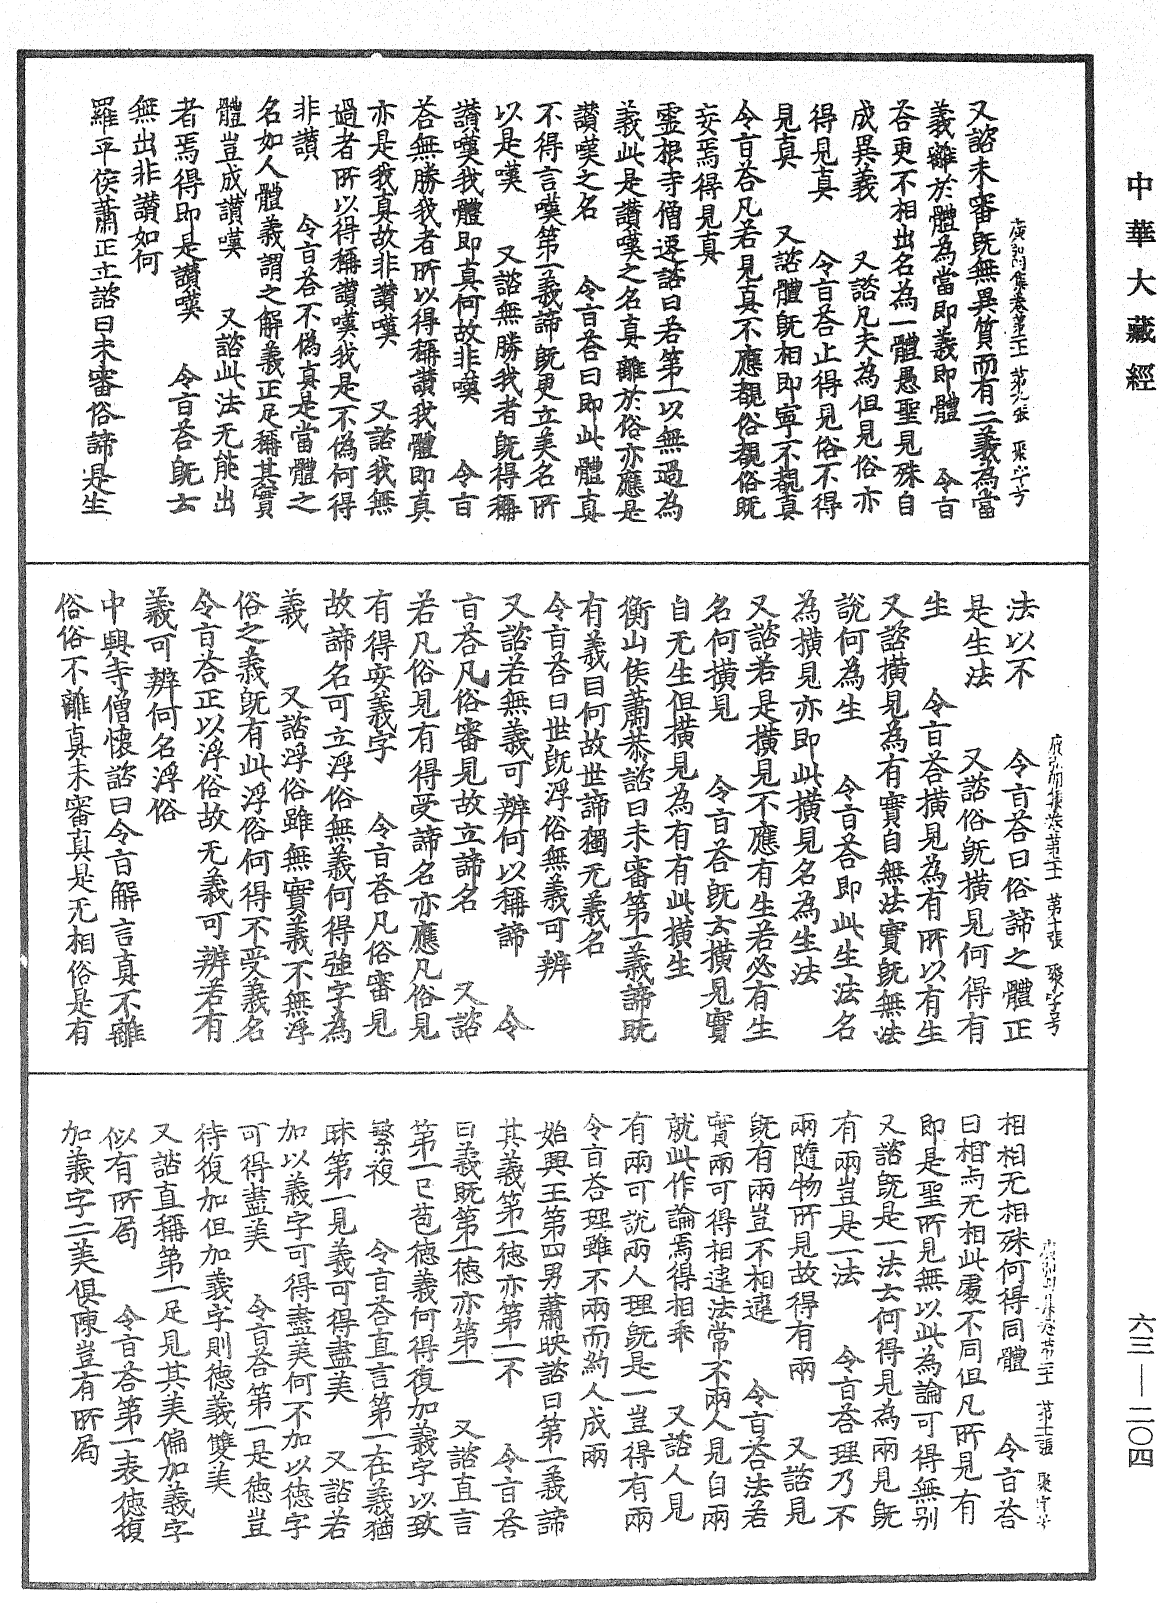 中華大藏經
廣弘明集卷第二十一 第九張 聚字号
又諮未審旣無異質而有二義為當
義離於體為當即義即體 令旨
荅更不相出名為一體愚聖見殊自
成異義 又諮凡夫為但見俗亦
得見真 令旨荅止得見俗不得
見真 又諮體旣相即寧不覩真
令旨荅凡若見真不應覩俗覩俗旣
妄焉得見真
靈根寺僧遷諮曰若第一以無過為
義此是讚嘆之名真離於俗亦應是
讚嘆之名 令旨荅曰即此體真
不得言嘆第一義諦旣更立美名所
以是嘆 又諮無勝我者旣得稱
讃嘆我體即真何故非嘆 令旨
荅無勝我者所以得稱讃我體即真
亦是我真故非讃嘆 又諮我無
過者所以得稱讃嘆我是不偽何得
非讃 令旨荅不偽真是當體之
名如人體義謂之解義正足稱其實
體豈成讃嘆 又諮此法无能出
者焉得即是讃嘆 令旨荅旣云
無出非讃如何
羅平侯蕭正立諮曰未審俗諦是生
法以不 令旨荅曰俗諦之體正
是生法 又諮俗旣橫見何得有
生 令旨荅橫見為有所以有生
又諮橫見為有實自無法實旣無法
說何為生 令旨荅即此生法名
為橫見亦即此橫見名為生法
又諮若是橫見不應有生若必有生
名何橫見 令旨荅旣云橫見實
自无生但橫見為有有此橫生
衡山侯蕭恭諮曰未審第一義諦旣
有義目何故世諦獨无義名
令旨荅曰世旣浮俗無義可辨
又諮若無義可辨何以稱諦 令
旨荅凡俗審見故立諦名 又諮
若凡俗見有得受諦名亦應凡俗見
有得安義字 令旨荅凡俗審見
故諦名可立浮俗無義何得強字為
義 又諮浮俗雖無實義不無浮
俗之義旣有此浮俗何得不受義名
令旨荅正以浮俗故无義可辨若有
義可辨何名浮俗
中興寺僧懷諮曰令旨解言真不離
俗俗不離真未審真是无相俗是有
相相无相殊何得同體 令旨荅
曰相与无相此處不同但凡所見有
即是聖所見無以此為論可得無別
又諮旣是一法云何得見為兩見旣
有兩豈是一法 令旨荅理乃不
兩隨物所見故得有兩 又諮見
旣有兩豈不相違 令旨荅法若
實兩可得相違法常不兩人見自兩
就此作論焉得相乖 又諮人見
有兩可說兩人理旣是一豈得有兩
令旨荅理雖不兩而約人成兩
始興王第四男蕭映諮曰第一義諦
其義第一德亦第一不 令旨荅
曰義旣第一德亦第一 又諮直言
第一已苞德義何得復加義字以致
繁複 令旨荅直言第一在義猶
昧第一見義可得盡美 又諮若
加以義字可得盡美何不加以德字
可得盡美 令旨荅第一是德豈
待復加但加義字則德義雙美
又諮直稱第一足見其美偏加義字
似有所局 令旨荅第一表德復
加義字二美俱陳豈有所局
六三——二〇四